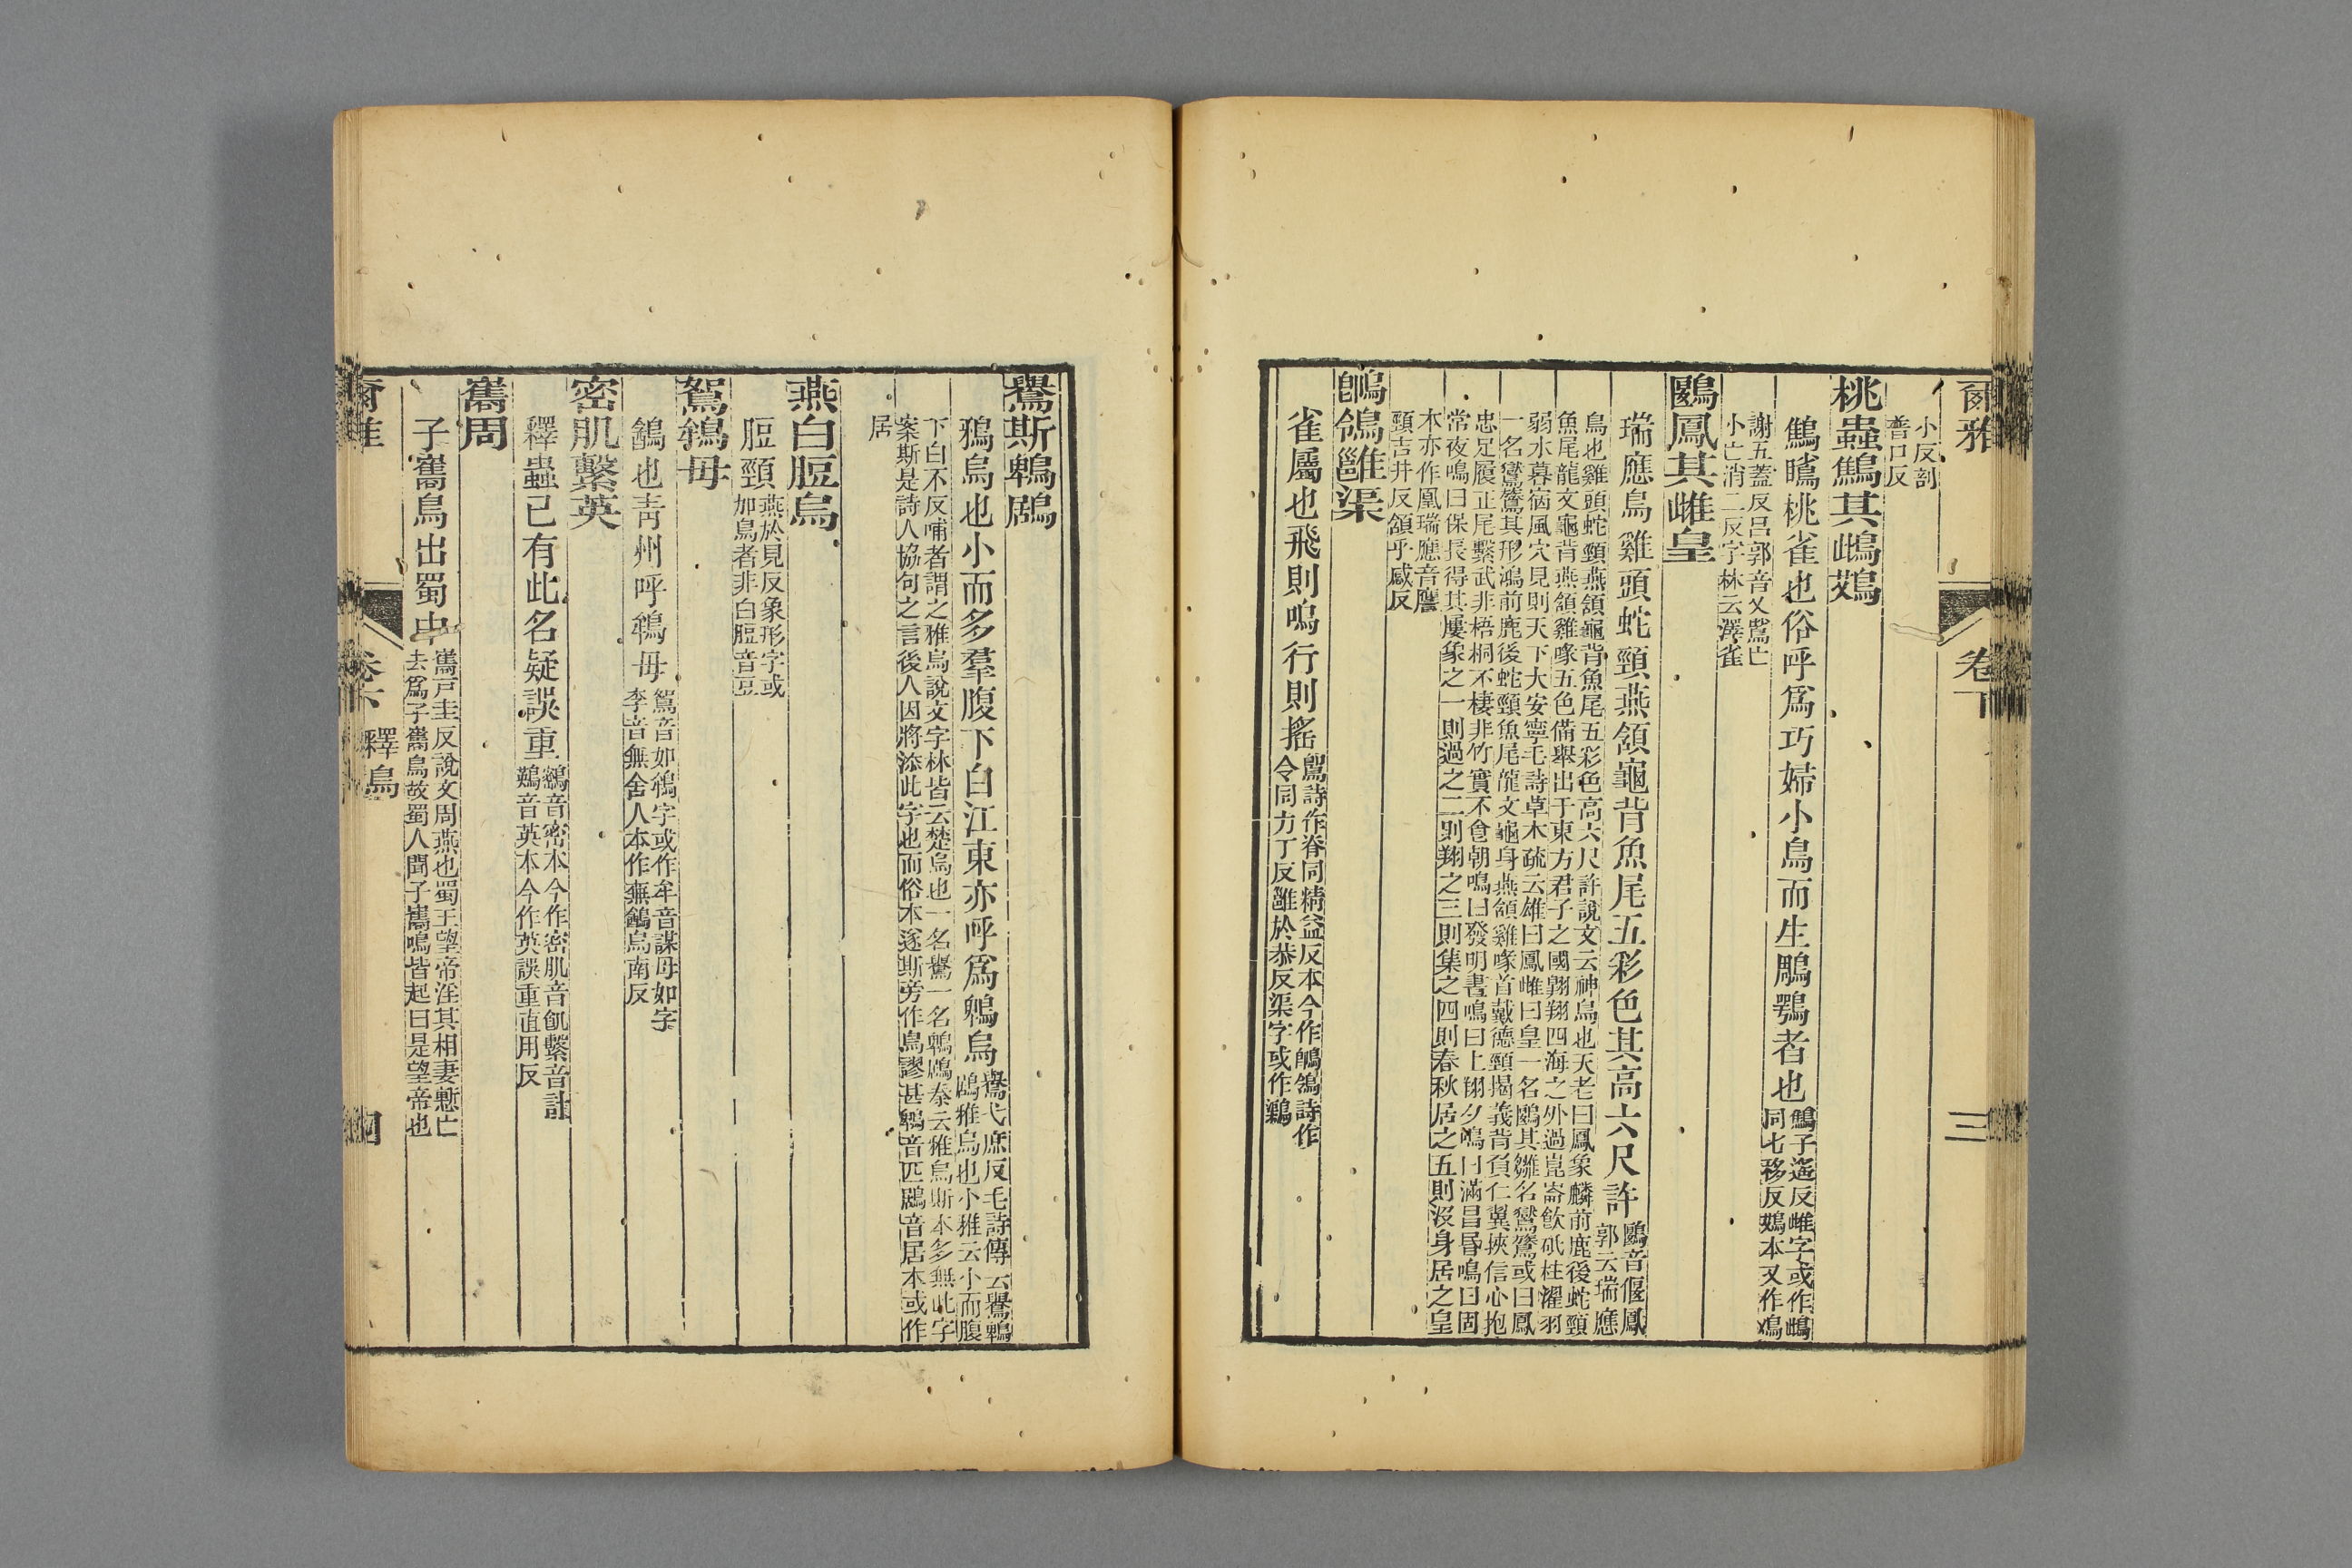 爾雅
卷下
三
小反剖
普口反
桃蟲鷦其雌鴱
鷦䳟桃雀也俗呼爲巧婦小鳥而生鵰鶚者也
鷦子遙反雌字或作鴜
同七移反鴱本又作鳭
謝五蓋反呂郭音乂䳟亡
小亡消二反字林云澤雀
鶠鳳其雌皇
瑞應鳥雞頭蛇頸燕頷龜背魚尾五彩色其高六尺許
鶠音偃鳳
郭云瑞應
鳥也雞頭蛇頸燕頷龜背魚尾五彩色高六尺許說文云神鳥也天老曰鳳象麟前鹿後蛇頸
魚尾龍文龜背燕頷雞喙五色備舉出于東方君子之國翺翔四海之外過崑崙飮砥柱濯羽
弱水暮宿風穴見則天下大安寧毛詩草木疏云雄曰鳳雌曰皇一名鶠其雛名鸑鷟或曰鳳
一名鸑鷟其形鴻前鹿後蛇頸魚尾龍文龜身燕頷雞喙首戴德頸揭義背負仁翼挾信心抱
忠足履正尾繫武非梧桐不棲非竹實不食朝鳴曰發明晝鳴曰上翔夕鳴曰滿昌昬鳴曰固
常夜鳴曰保長得其屢象之一則過之二則翔之三則集之四則春秋居之五則沒身居之皇
本亦作凰瑞應音鷹
頸吉井反頷乎感反
䳭鴒雝渠
雀屬也飛則鳴行則搖
䳭詩作脊同精益反本今作䳭鴒詩作
令同力丁反雝於恭反渠字或作鸜
鸒斯鵯鶋
鴉烏也小而多羣腹下白江東亦呼爲鵯烏
鸒弋庶反毛詩傳云鸒鵯
鶋雅烏也小雅云小而腹
下白不反哺者謂之雅烏說文字林皆云楚烏也一名鸒一名鵯鶋秦云雅烏斯本多無此字
案斯是詩人協句之言後人因將添此字也而俗本遂斯旁作鳥謬甚鵯音匹鶋音居本或作
居
燕白脰烏
脰頸
燕於見反象形字或
加鳥者非白脰音豆
鴽鴾毋
䳺也靑州呼鴾毋
鴽音如鴾字或作牟音謀毋如字
李音無舍人本作無䳺烏南反
密肌繫英
釋蟲已有此名疑誤重
鷑音密本今作密肌音飢繫音計
鶧音英本今作英誤重直用反
巂周
子巂鳥出蜀中
巂戸圭反說文周燕也蜀王望帝淫其相妻慙亡
去爲子巂鳥故蜀人聞子巂鳴皆起曰是望帝也
爾雅
卷下
釋鳥
四